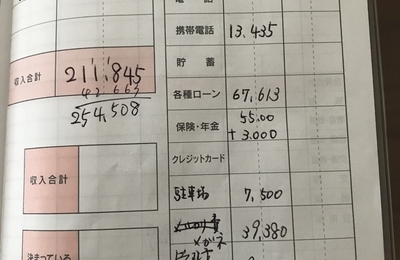 電話
携帯電話 13.435
貯蓄
収入合計 211,845
42 663
254,508
各種ローン 67,613
保険・年金 55.00
+3.000
クレジットカード
収入合計
駐車場 7,500
メガネ 39,380
決まっている